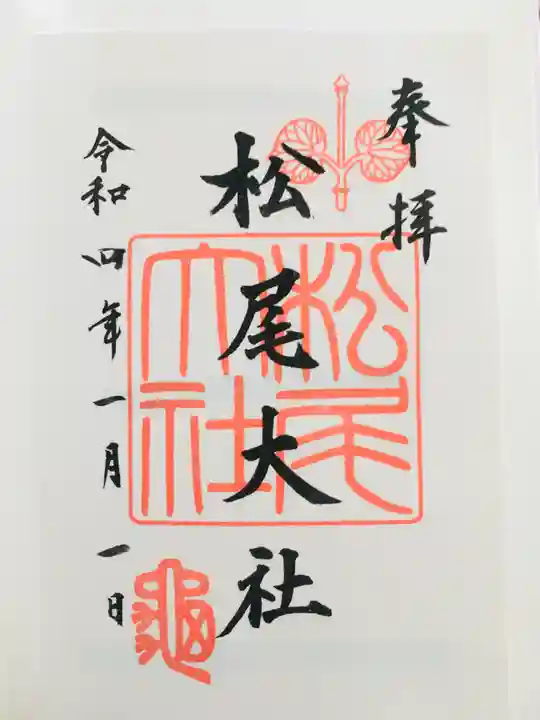 奉拝
松尾大社
松尾大社
令和四年一月一日
亀